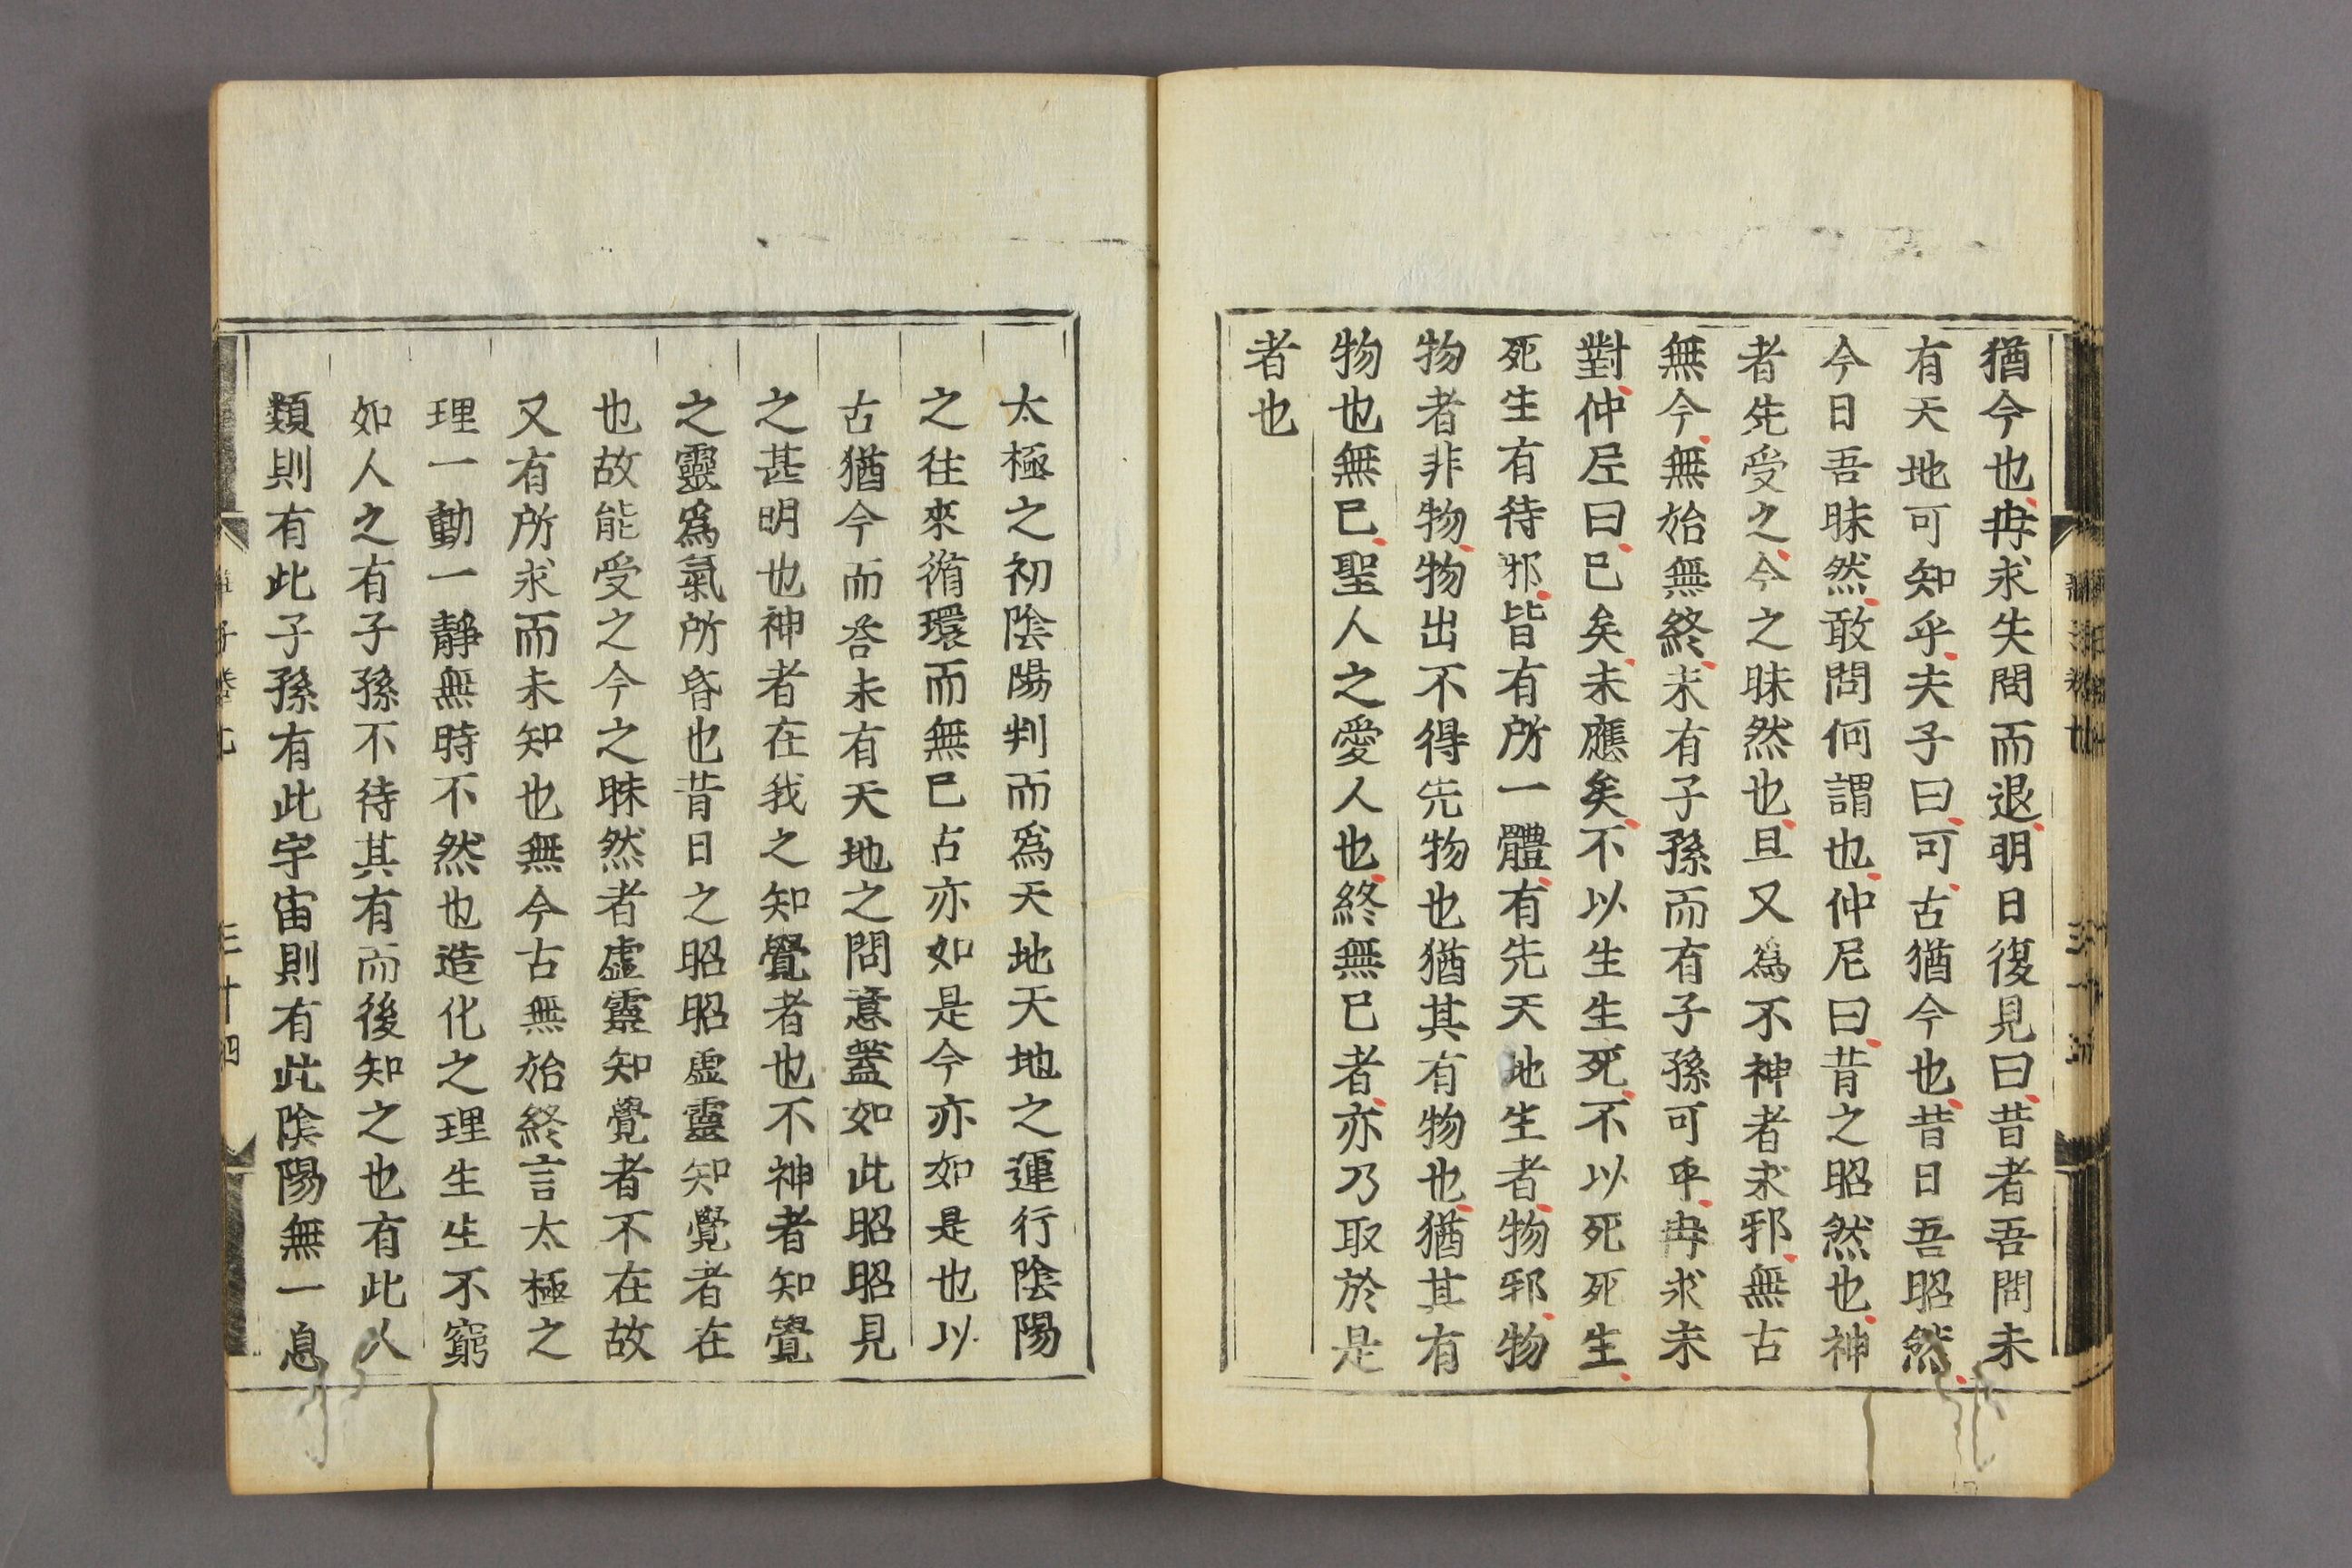 猶今也冉求失問而退明日復見曰昔者吾問未
有天地可知乎夫子曰可古猶今也昔日吾昭然
今日吾昧然敢問何謂也仲尼曰昔之昭然也神
者先受之今之昧然也且又為不神者求邪無古
無今無始無終未有子孫而有子孫可乎冉求未
對仲尼曰已矣未應矣不以生生死不以死死生
死生有待邪皆有所一體有先天地生者物邪物
物者非物物出不得先物也猶其有物也猶其有
物也無已聖人之愛人也終無已者亦乃取於是
者也
太極之初陰陽判而爲天地天地之運行陰陽
之往來循環而無已古亦如是今亦如是也以
古猶今而荅未有天地之問意蓋如此昭昭見
之甚明也神者在我之知覺者也不神者知覺
之靈爲氣所昏也昔日之昭昭虛靈知覺者在
也故能受之今之昧然者虛靈知覺者不在故
又有所求而未知也無今古無始終言太極之
理一動一靜無時不然也造化之理生生不窮
如人之有子孫不待其有而後知之也有此人
類則有此子孫有此宇宙則有此陰陽無一息
三十四